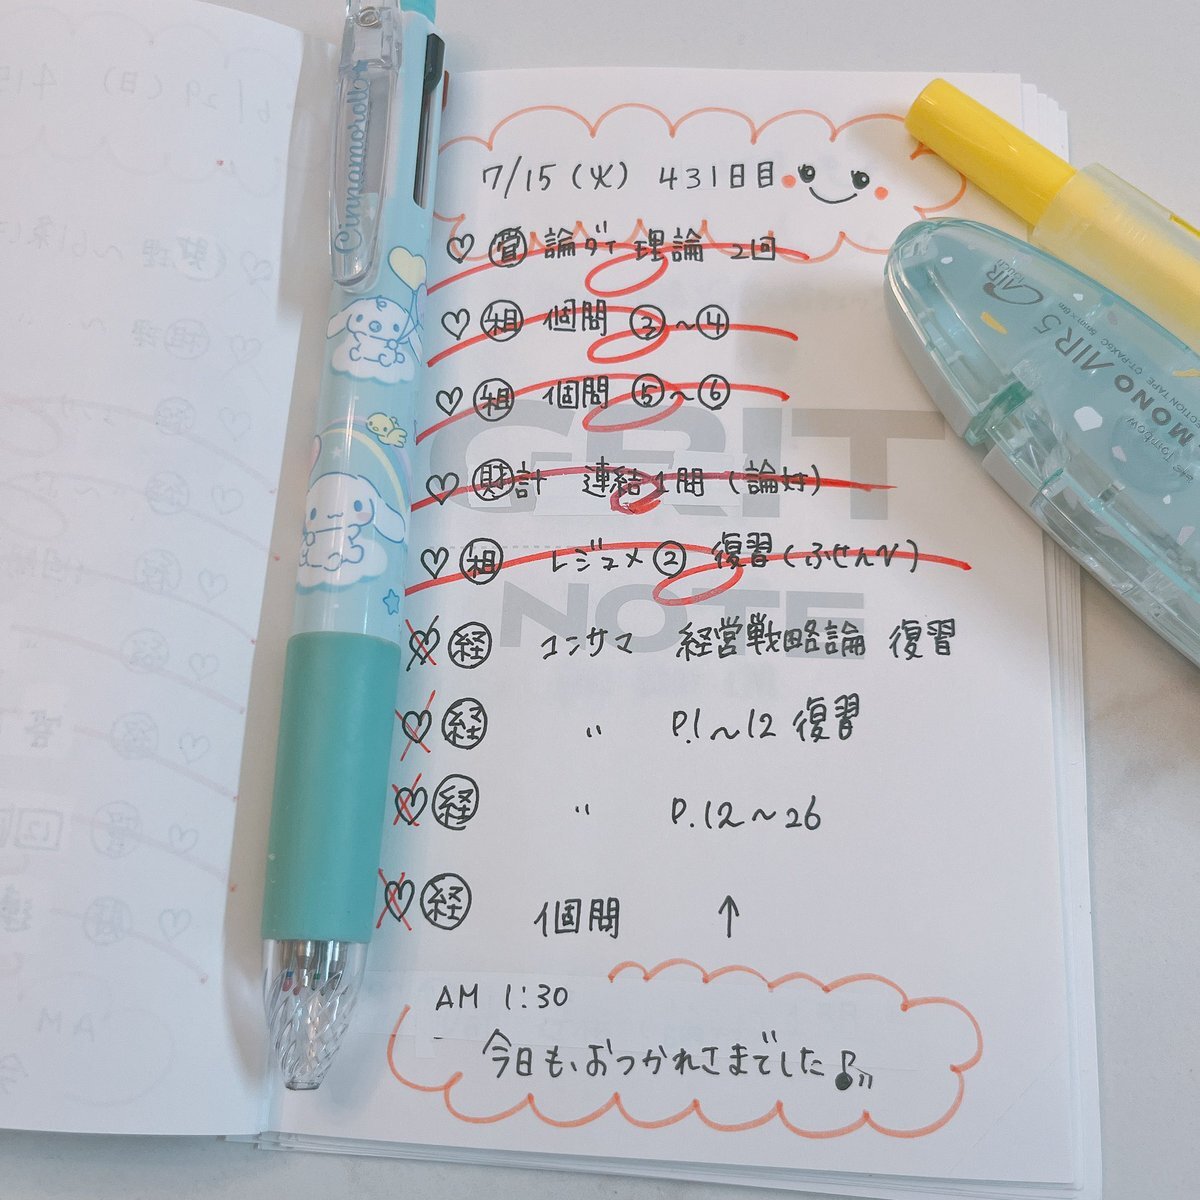 7/15(火) 431日目
♡ 管 論ダイ 理論 2回
♡ 租 個問 ③~④
♡ 租 個問 ⑤~⑥
♡ 財計 連結1問(論対)
♡ 租 レジュメ② 復習(ふせんベ)
♡ 経 コンサマ 経営戦略論 復習
♡ 経 〃 P.1~12 復習
♡ 経 〃 P.12~26
♡ 経 個問 ↑
AM 1:30
今日も、おつかれさまでした♪
GRIT
NOTE
Cinnamoroll
AIR touch
MONO AIR 5
CORRECTION TAPE CT-PAX5C
Tombow